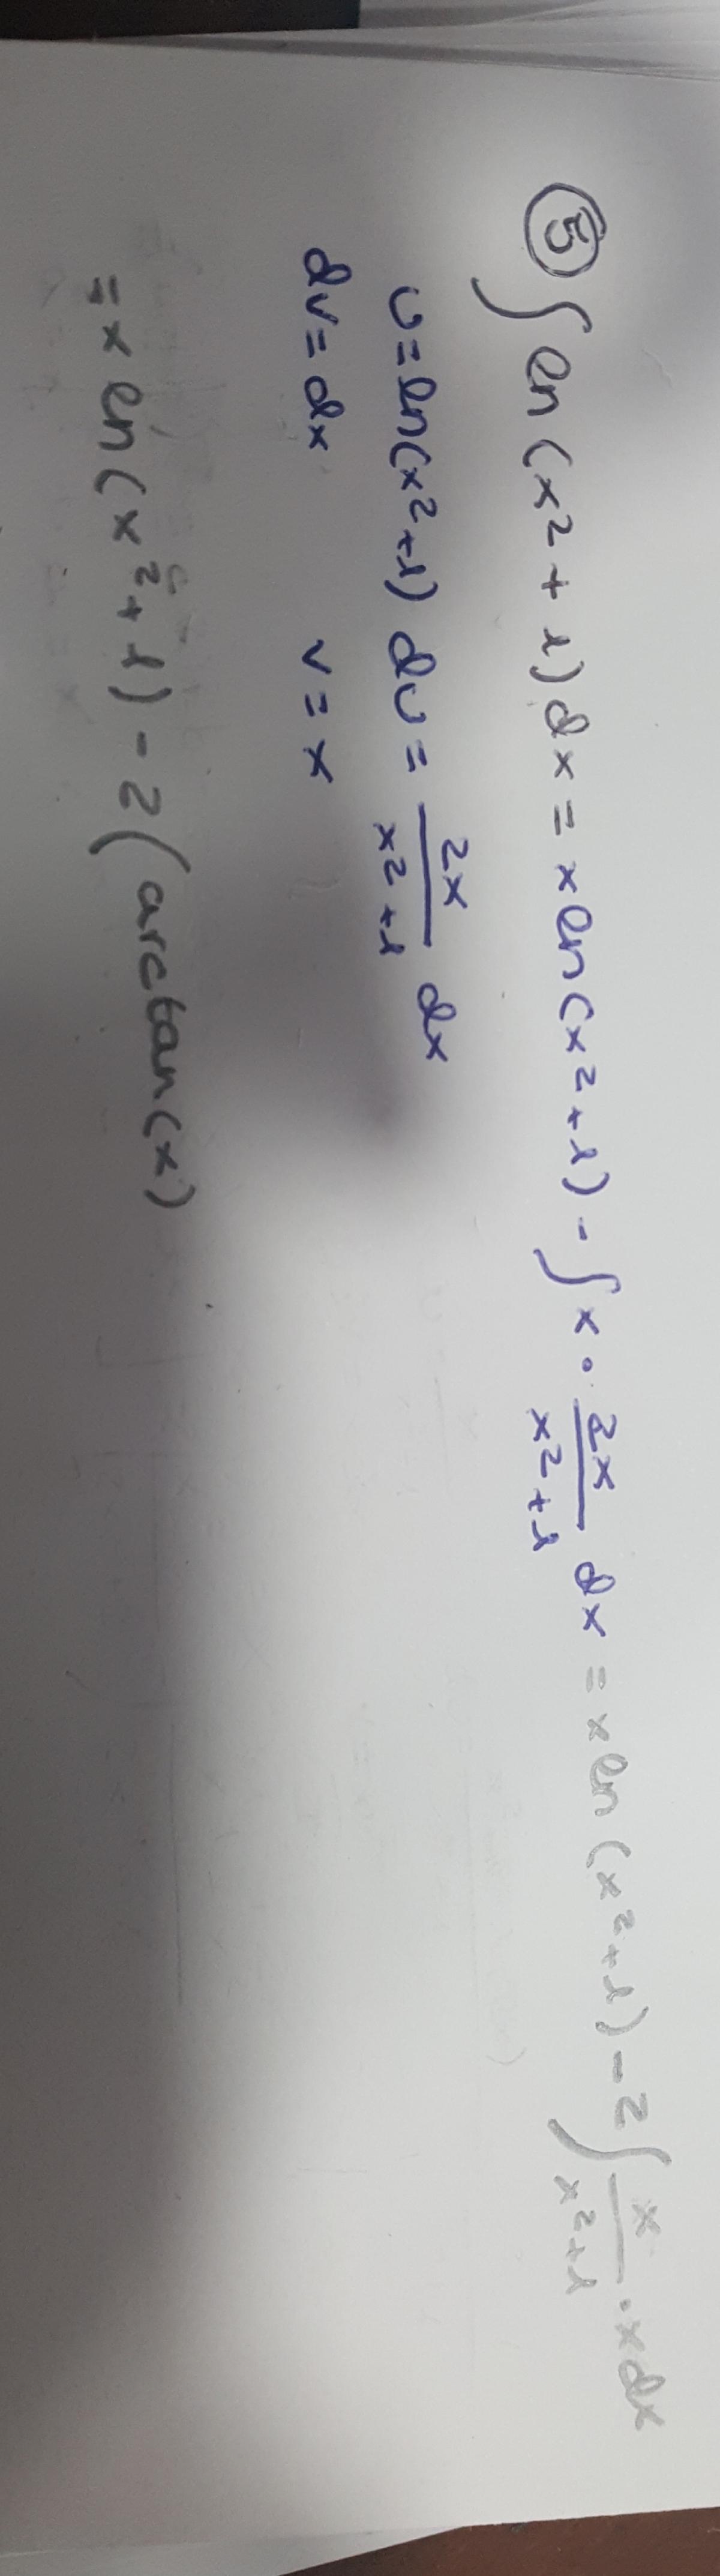 ⑤ ∫ ln(x²+1)dx = x ln(x²+1) - ∫ x · 2x/(x²+1) dx = x ln(x²+1) - 2 ∫ x/(x²+1) · x dx
u = ln(x²+1) du = 2x/(x²+1) dx
dv = dx v = x
= x ln(x²+1) - 2(arctan(x)